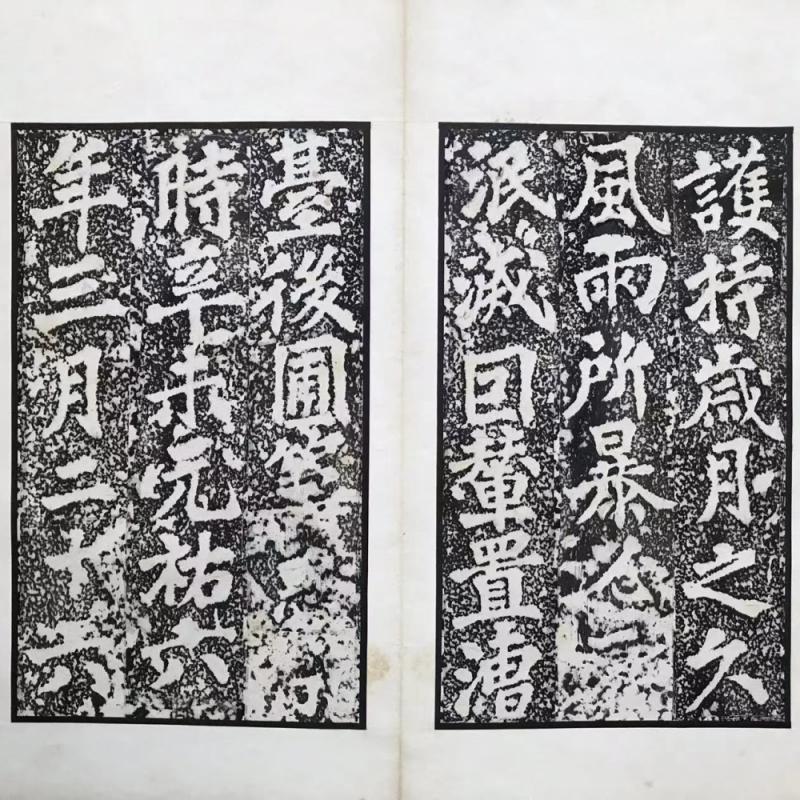 護持歲月之久
風雨所暴
泯滅回輦置漕
臺後圃
時辛未元祐六
年三月二十六